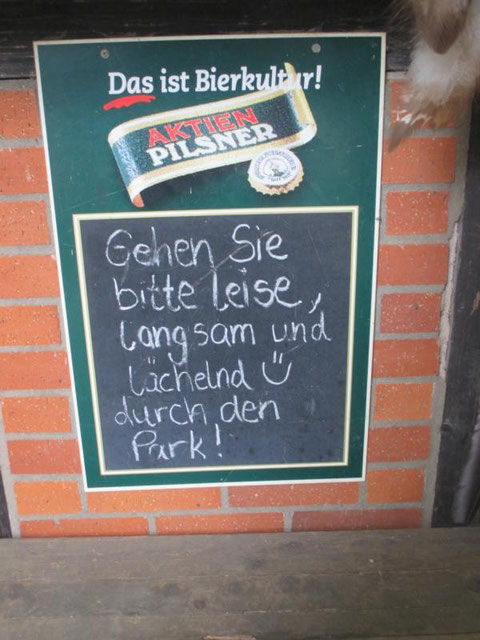 Das ist Bierkultur!
AKTIEN
PILSNER
Gehen Sie
bitte leise,
langsam und
lächelnd ☺
durch den
Park!